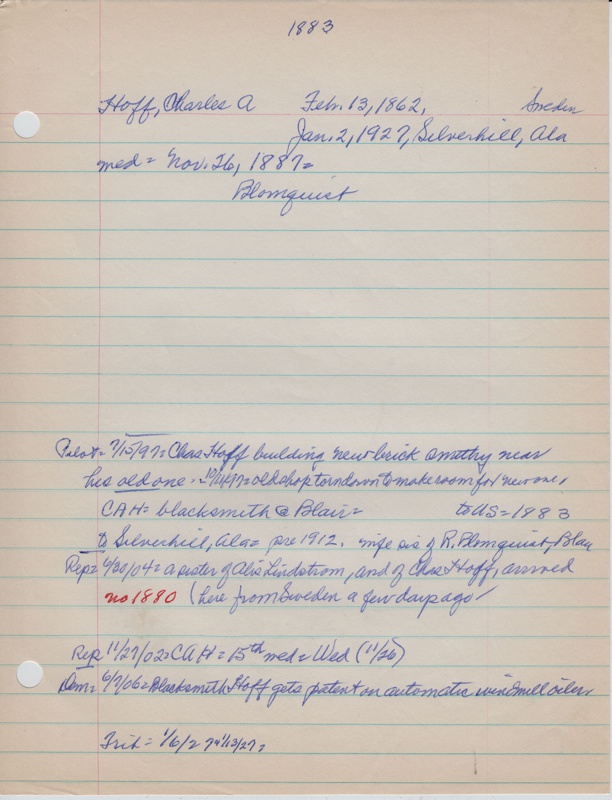 1883
Hoff, Charles A Feb. 13, 1862, Sweden
Jan. 2, 1927, Silverhill, Ala
med = Nov. 26, 1887 =
Blomquist
Pilot = 7/15/97 = Chas Hoff building new brick smithy near
his old one - 10/14/97 = old shop torn down to make room for new one,
CAH = blacksmith @ Blair = to US = 1883
to Silverhill, Ala = pre 1912. wife sis of R. Blomquist, Blair
Rep = 6/30/04 = a sister of Lindstrom, and of Chas Hoff, arrived
no 1880 (here from Sweden a few days ago
Rep 11/27/02 = CAH = 15th med = Wed (11/26)
Dem = 6/7/06 = Blacksmith Hoff gets patent on automatic windmill oiler,
Trib = 1/6/27 1/13/27 =